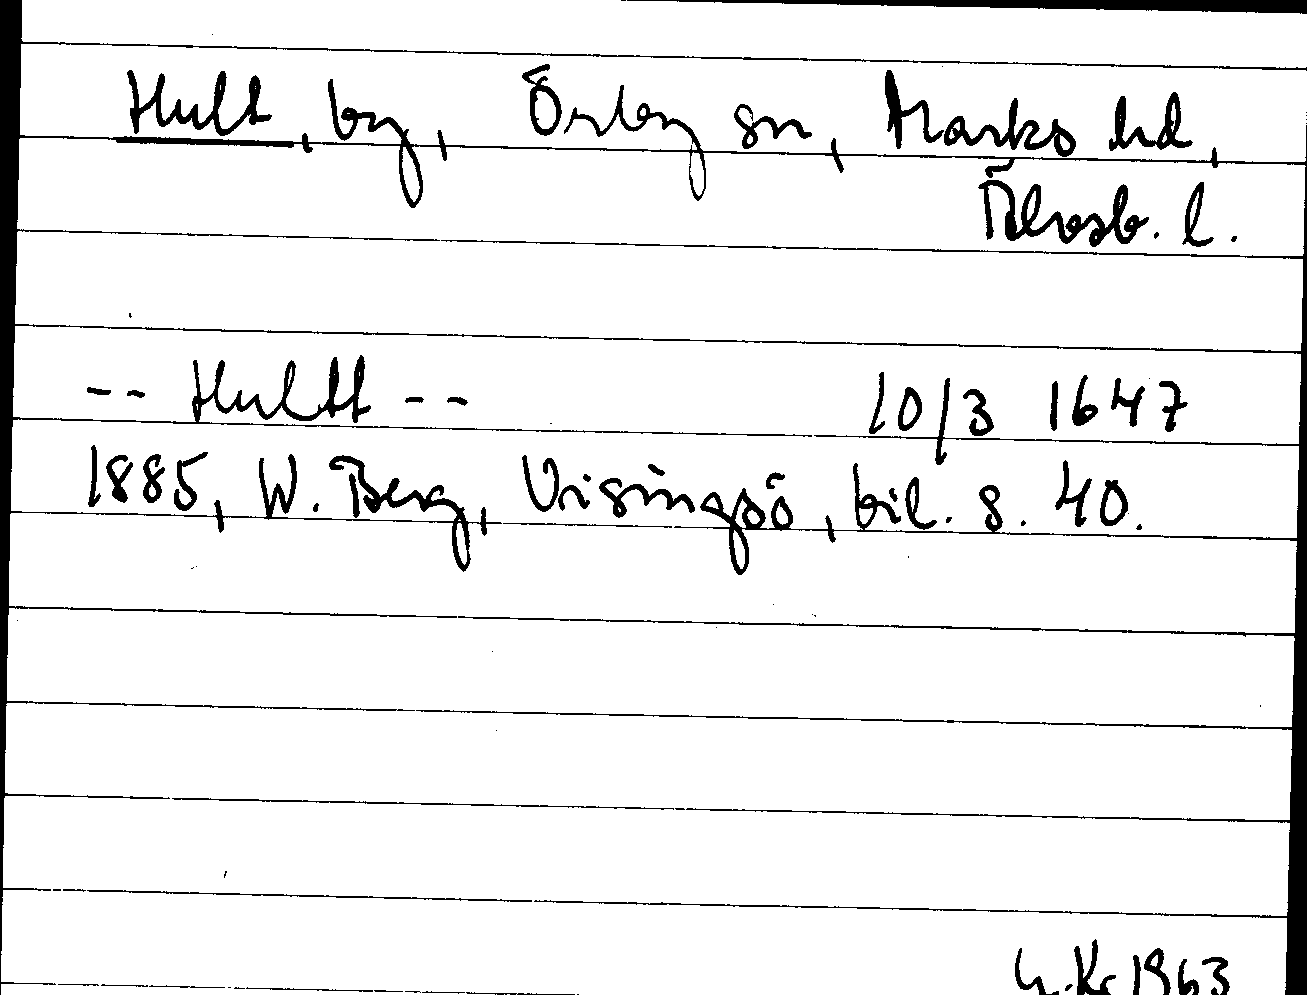 Hult, by, Örby sn, Marks hd,
Älvsb. l.
-- Hultt -- 10/3 1647
1885, W. Berg, Visingsö, bil. s. 40.
Kr 1963